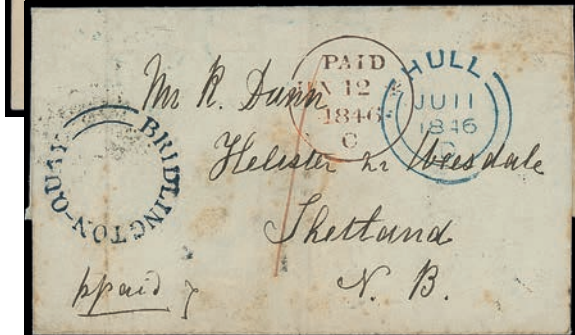 PAID
JN 12
1846
C
HULL
JU 11
1846
BRIDLINGTON-QUAY
Mr R. Dunn
Helister nr Weesdale
Shetland
N. B.
ppaid